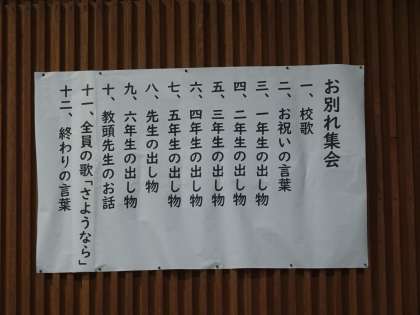 お別れ集会
一、校歌
二、お祝いの言葉
三、一年生の出し物
四、二年生の出し物
五、三年生の出し物
六、四年生の出し物
七、五年生の出し物
八、先生の出し物
九、六年生の出し物
十、教頭先生のお話
十一、全員の歌「さようなら」
十二、終わりの言葉